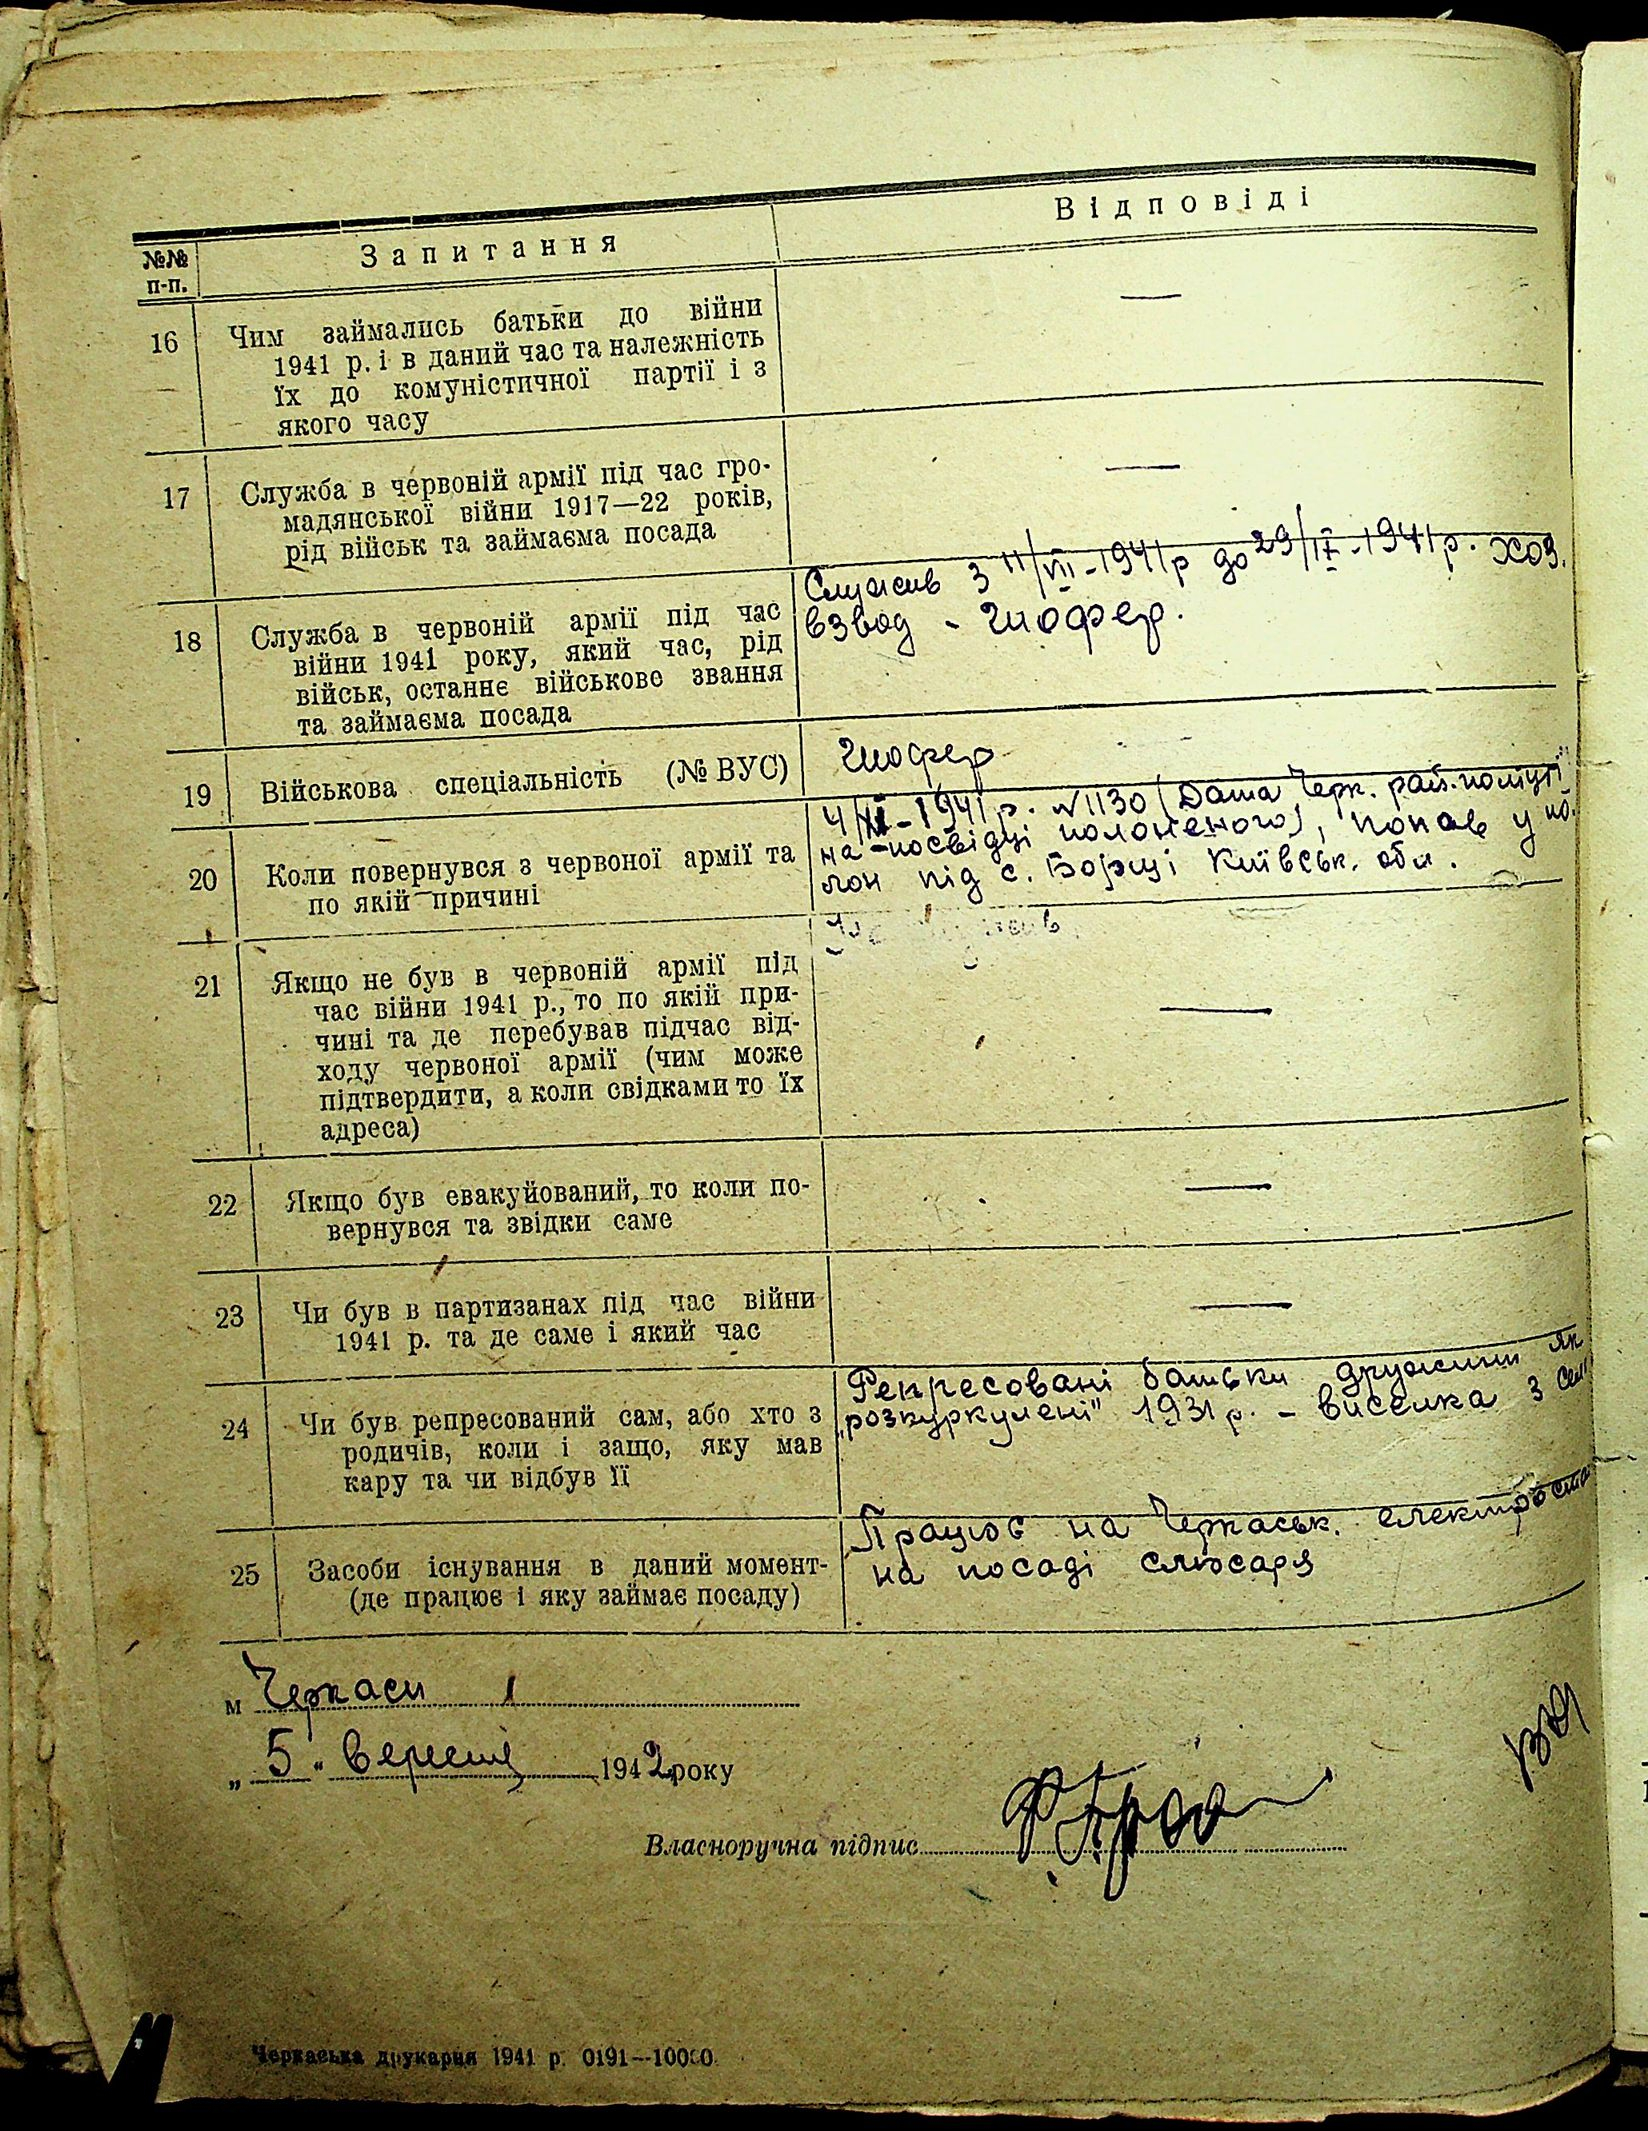 №№ п-п.
Запитання
Відповіді
16
Чим займались батьки до війни
1941 р. і в даний час та належність
їх до комуністичної партії і з
якого часу
—
17
Служба в червоній армії під час гро-
мадянської війни 1917—22 років,
рід військ та займаєма посада
—
18
Служба в червоній армії під час
війни 1941 року, який час, рід
військ, останнє військово звання
та займаєма посада
Служив з 11/VII-1941р до 29/IX-1941р. хоз.
взвод - шофер.
19
Військова спеціальність (№ ВУС)
Шофер
20
Коли повернувся з червоної армії та
по якій причині
4/XI-1941р. №1130 (Дата Черк. рай.
на посвідці полоненого), попав у по-
лон під с. Борщі Київськ. обл.
21
Якщо не був в червоній армії під
час війни 1941 р., то по якій при-
чині та де перебував підчас від-
ходу червоної армії (чим може
підтвердити, а коли свідками то їх
адреса)
—
22
Якщо був евакуйований, то коли по-
вернувся та звідки саме
—
23
Чи був в партизанах під час війни
1941 р. та де саме і який час
—
24
Чи був репресований сам, або хто з
родичів, коли і защо, яку мав
кару та чи відбув її
Репресовані батьки дружини як
„розкуркулені" 1931 р. - виселка з
25
Засоби існування в даний момент-
(де працює і яку займає посаду)
Працює на Черкаськ. електроста
на посаді слюсаря
м Черкаси
„5" вересня 1942 року
Власноручна підпис
Черкаська друкарня 1941 р. 0191—10000